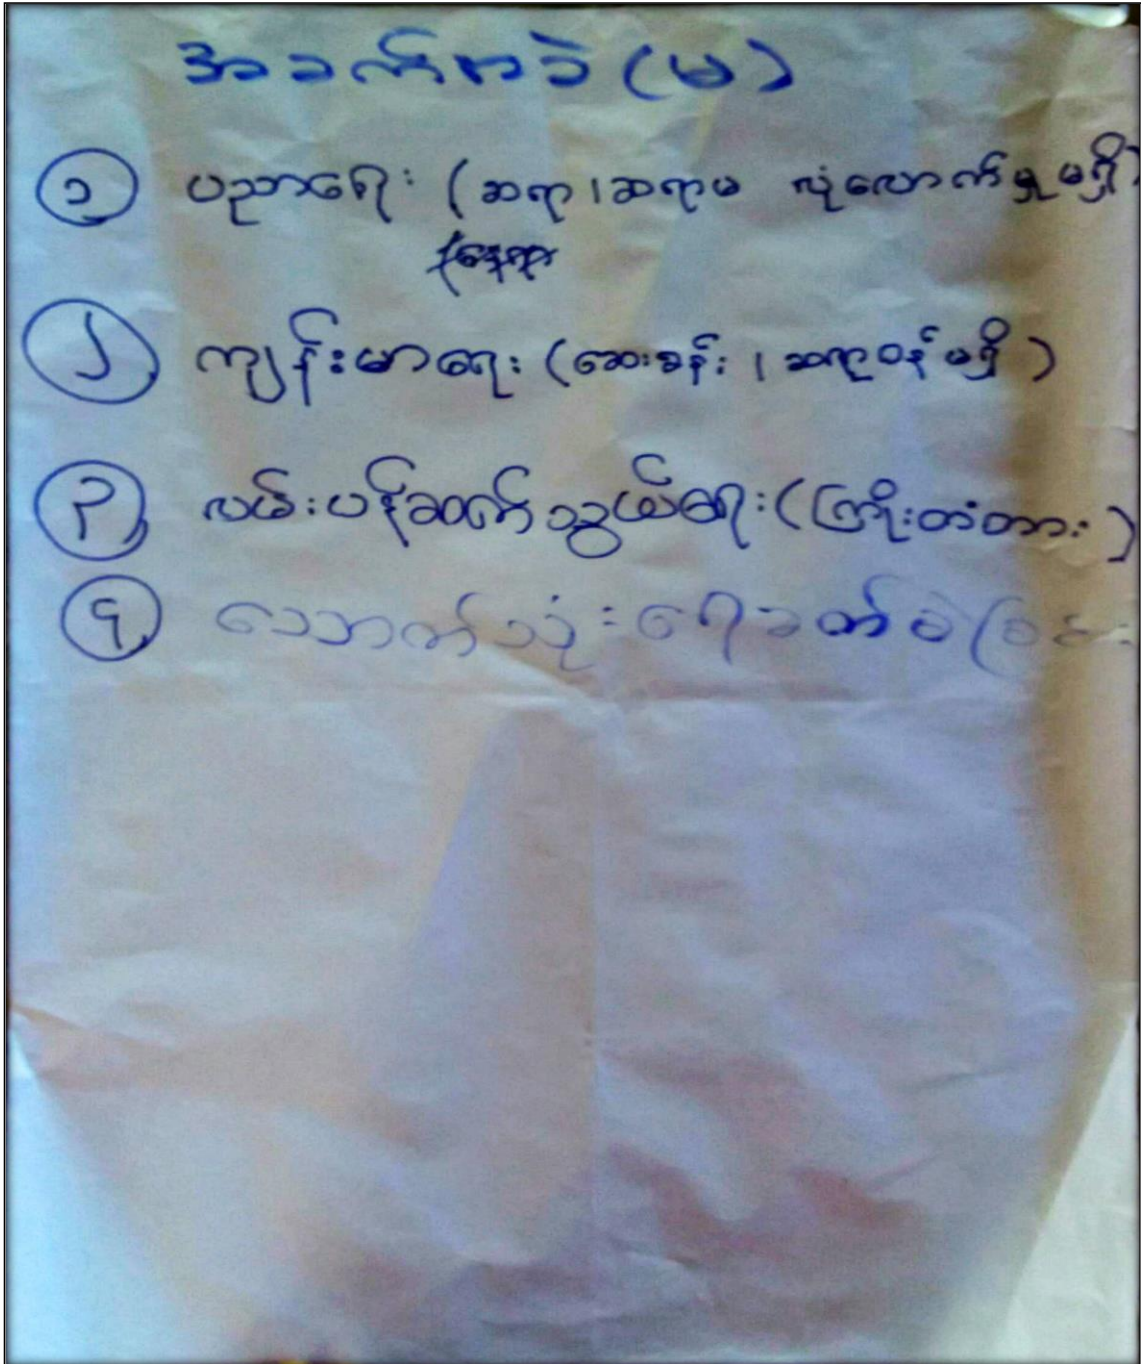 အခက်အခဲ (မ)
၁ ပညာရေး (ဆရာ၊ ဆရာမ လုံလောက်မှုမရှိ)
၂ ကျန်းမာရေး (ဆေးခန်း၊ ဆရာဝန်မရှိ)
၃ လမ်းပန်းဆက်သွယ်ရေး (ကြိုးတံတား)
၄ သောက်သုံးရေခက်ခဲခြင်း